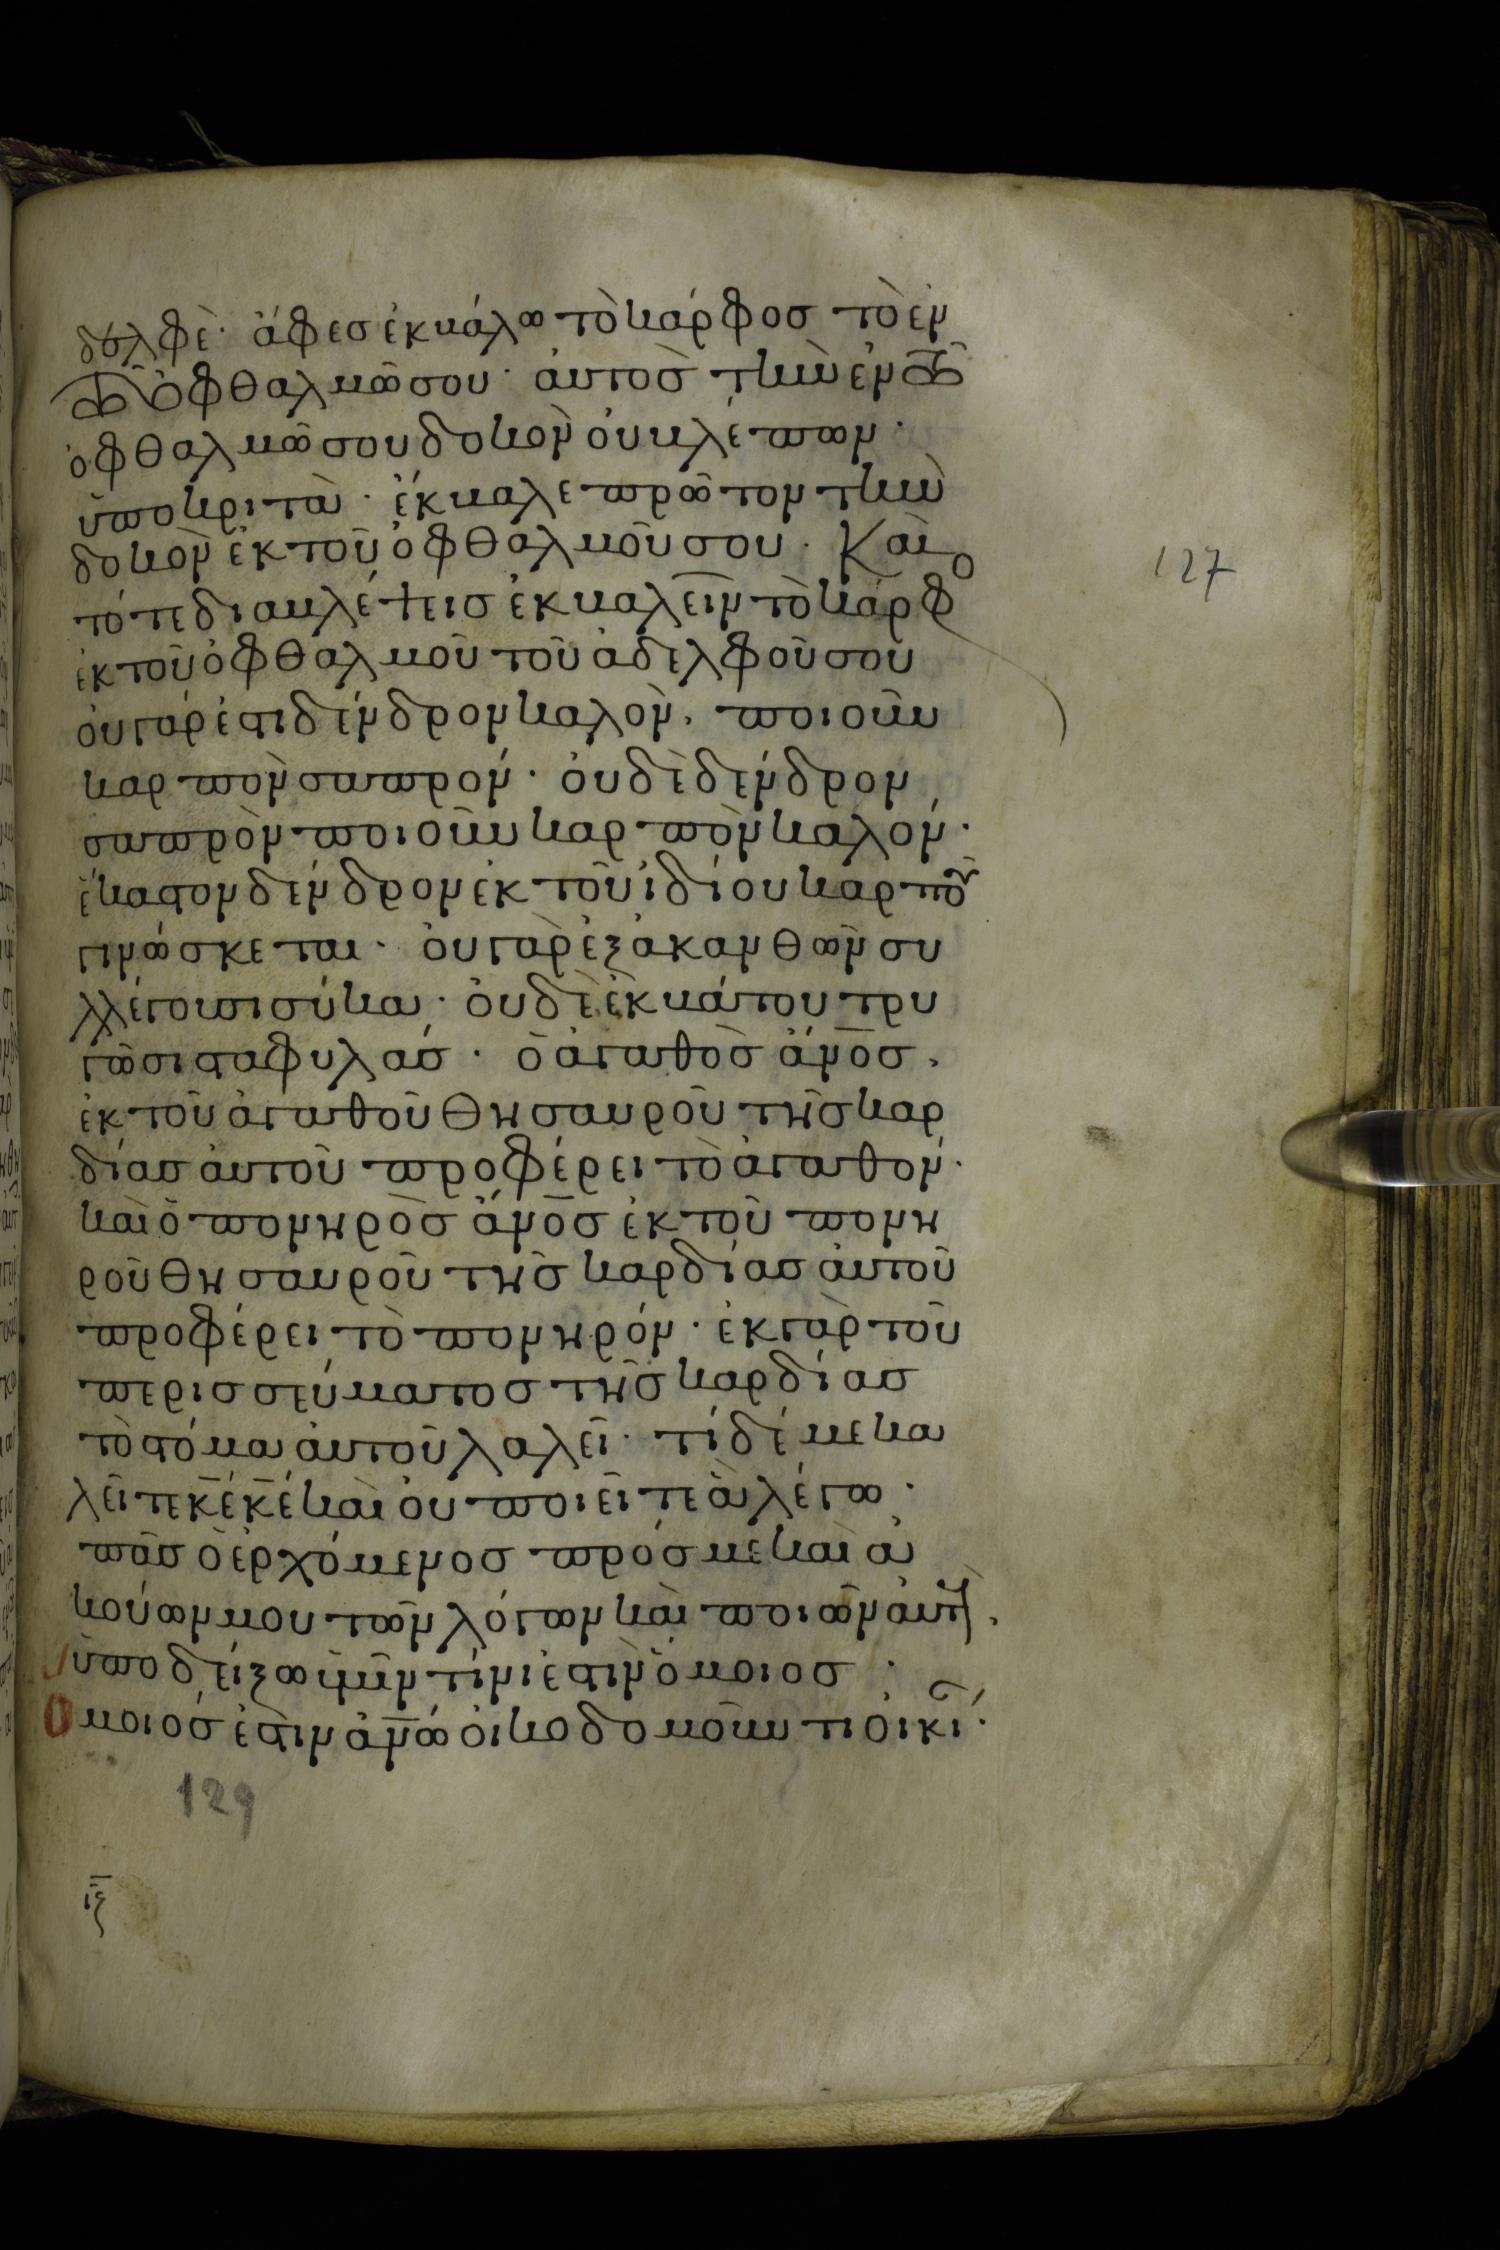 δελφὲ· ἄφες ἐκβάλω τὸ κάρφος τὸ ἐν
τῶ ὀφθαλμῶ σου· αὐτὸς τὴν ἐν τῶ
ὀφθαλμῶ σου δοκὸν οὐ βλέπων·
ὑποκριτὰ· ἔκβαλε πρῶτον τὴν
δοκὸν ἐκ τοῦ ὀφθαλμοῦ σου· Καὶ
τότε διαβλέψεις ἐκβαλεῖν τὸ κάρφο
ἐκ τοῦ ὀφθαλμοῦ τοῦ ἀδελφοῦ σου
οὐ γάρ ἐστι δένδρον καλὸν, ποιοῦν
καρπὸν σαπρόν· οὐδὲ δένδρον
σαπρὸν ποιοῦν καρπὸν καλόν·
ἕκαστον δένδρον ἐκ τοῦ ἰδίου καρποῦ
γινώσκεται· οὐ γὰρ ἐξ ἀκανθῶν συ
λλέγουσι σύκα· οὐδὲ ἐκ βάτου τρυ
γῶσι σταφυλάς· ὁ ἀγαθὸς ἄν̅ο̅ς,
ἐκ τοῦ ἀγαθοῦ θησαυροῦ τῆς καρ
δίας αὐτοῦ προφέρει τὸ ἀγαθόν·
καὶ ὁ πονηρὸς ἄν̅ο̅ς ἐκ τοῦ πονη
ροῦ θησαυροῦ τῆς καρδίας αὐτοῦ
προφέρει τὸ πονηρόν· ἐκ γὰρ τοῦ
περισσεύματος τῆς καρδίας
τὸ στόμα αὐτοῦ λαλεῖ· τί δέ με κα
λεῖτε κ̅έ κ̅έ καὶ οὐ ποιεῖτε ἃ λέγω·
πᾶς ὁ ἐρχόμενος πρός με καὶ ἀ
κούων μου τῶν λόγων καὶ ποιῶν αὐτοὺς,
ὑποδείξω ὑμῖν τίνι ἐστὶν ὅμοιος·
Ὅμοιός ἐστιν ἀν̅ώ οἰκοδομοῦντι οἰκί·
127
129
ιξ̅